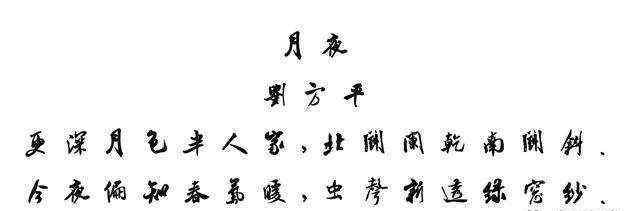 月夜
劉方平
更深月色半人家,北鬥闌乾南鬥斜.
今夜偏知春氣暖,虫聲新透綠窗紗.